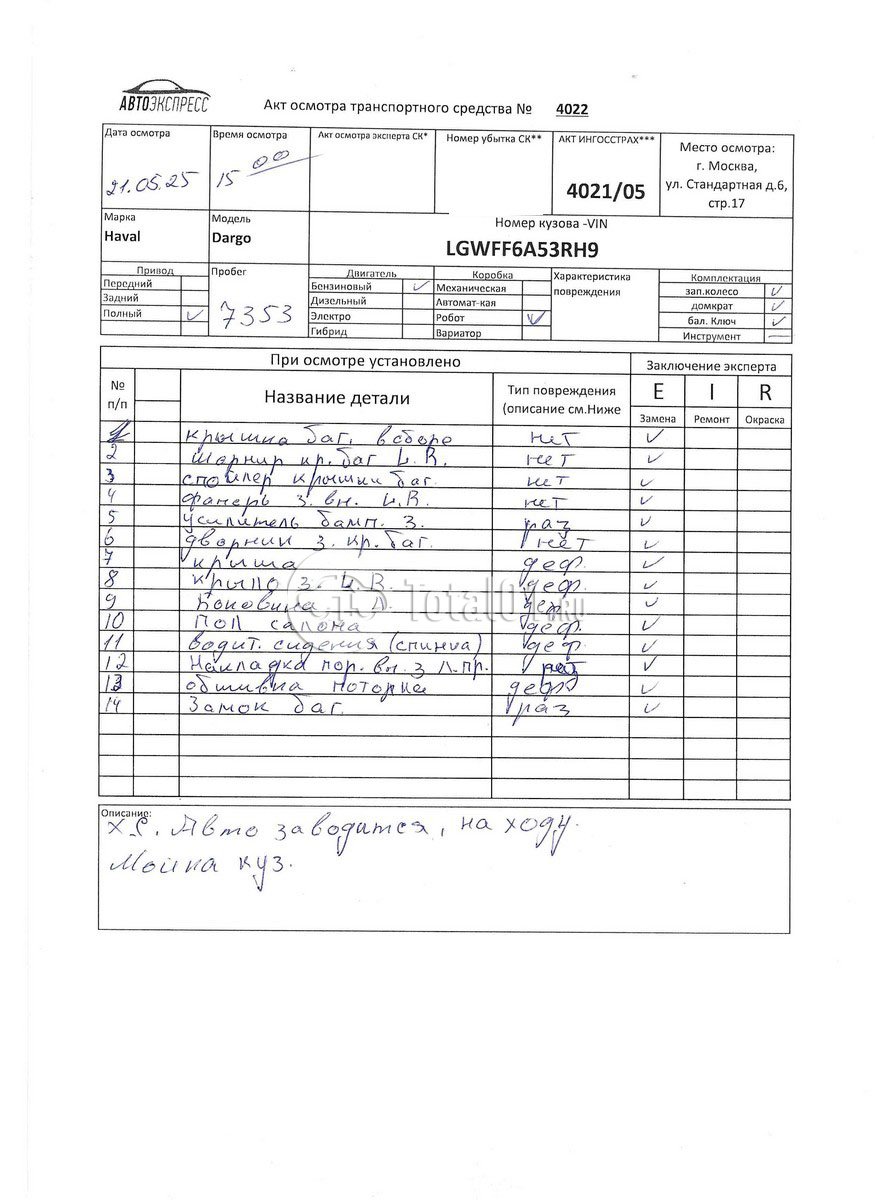 АВТОЭКСПРЕСС
Акт осмотра транспортного средства № 4022
Дата осмотра Время осмотра Акт осмотра эксперта СК* Номер убытка СК** АКТ ИНГОССТРАХ*** Место осмотра:
г. Москва,
ул. Стандартная д.6,
стр.17
21.05.25 15 00 4021/05
Марка Модель Номер кузова -VIN
Haval Dargo LGWFF6A53RH9
Привод Пробег Двигатель Коробка Характеристика повреждения Комплектация
Передний Бензиновый ✓ Механическая зап.колесо ✓
Задний Дизельный Автомат-кая домкрат ✓
Полный ✓ 7353 Электро Робот ✓ бал. Ключ ✓
Гибрид Вариатор Инструмент —
При осмотре установлено Заключение эксперта
№ п/п Название детали Тип повреждения (описание см.Ниже E I R
Замена Ремонт Окраска
1 крышка баг. в сборе нет ✓
2 шарнир кр. баг L.R. нет ✓
3 спойлер крышки баг. нет ✓
4 фонарь з. вн. L.R. нет ✓
5 усилитель бамп. з. раз ✓
6 дворник з. кр. баг. нет ✓
7 крыша деф. ✓
8 крыло з. L R. деф. ✓
9 Боковина Л. деф. ✓
10 Пол салона деф. ✓
11 водит. сидения (спинка) деф. ✓
12 Накладка пор. вн. з л. пр. ✓
13 обшивка потолка деф ✓
14 Замок баг. раз ✓
Total01.RU
Описание:
Х.С. Авто заводится, на ходу.
Мойка куз.